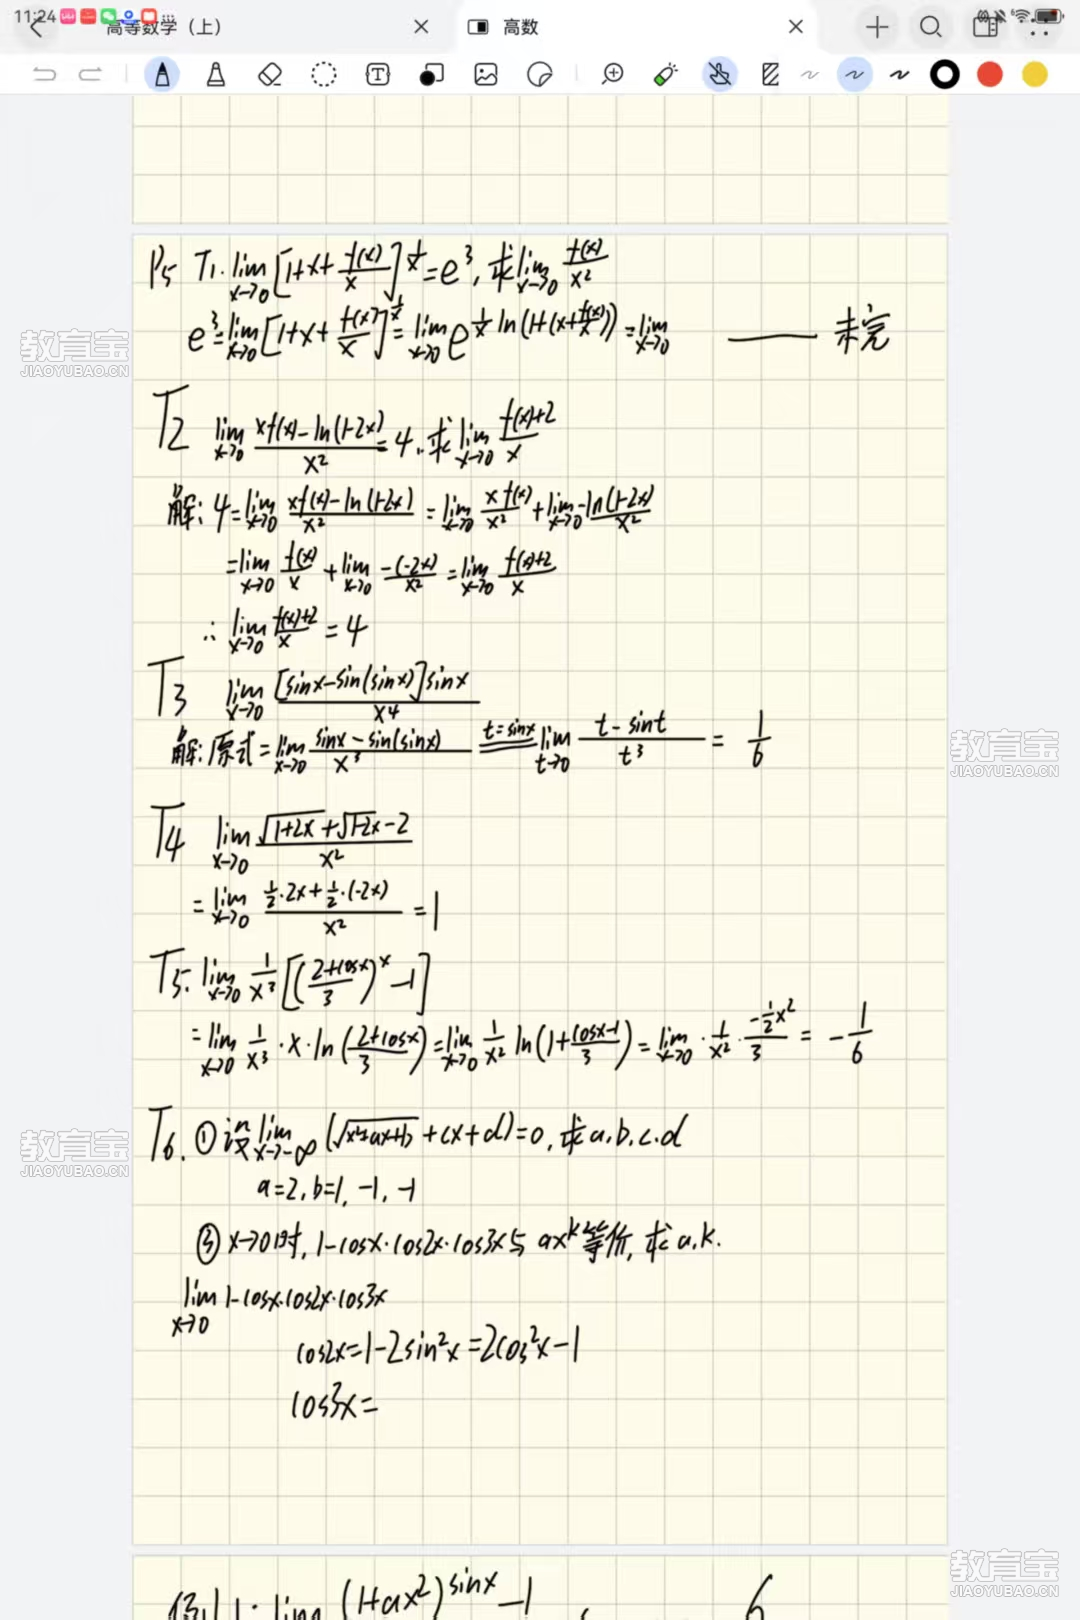 11:24
高等数学（上）
高数
P5 T1. lim x→0 [1+x+f(x)/x]^(1/x)=e³, 求lim x→0 f(x)/x²
e³=lim x→0 [1+x+f(x)/x]^(1/x)=lim x→0 e^(1/x ln(1+(x+f(x)/x)))=lim x→0 —— 未完
T2 lim x→0 (xf(x)-ln(1-2x))/x²=4, 求lim x→0 (f(x)+2)/x
解: 4=lim x→0 (xf(x)-ln(1-2x))/x² = lim x→0 xf(x)/x² + lim x→0 -ln(1-2x)/x²
=lim x→0 f(x)/x + lim x→0 -(-2x)/x² = lim x→0 (f(x)+2)/x
∴ lim x→0 (f(x)+2)/x = 4
T3 lim x→0 [sinx-sin(sinx)]sinx/x⁴
解: 原式=lim x→0 (sinx-sin(sinx))/x³ t=sinx lim t→0 (t-sint)/t³ = 1/6
T4 lim x→0 (√1+2x+√1-2x-2)/x²
=lim x→0 (1/2·2x+1/2·(-2x))/x² =1
T5. lim x→0 1/x³[((2+cosx)/3)^x-1]
=lim x→0 1/x³·x·ln((2+cosx)/3)=lim x→0 1/x² ln(1+(cosx-1)/3)=lim x→0 ·1/x²·(-1/2x²)/3 = -1/6
T6. ①设lim x→-∞ (√x²+ax+b+cx+d)=0, 求a.b.c.d
a=2, b=1, -1, -1
③x→0时, 1-cosx·cos2x·cos3x与ax^k等价, 求a.k.
lim x→0 1-cosx·cos2x·cos3x
cos2x=1-2sin²x=2cos²x-1
cos3x=
例1: lim (1+ax²)^sinx-1 6
教育宝
JIAOYUBAO.CN
教育宝
JIAOYUBAO.CN
教育宝
JIAOYUBAO.CN
教育宝
JIAOYUBAO.CN